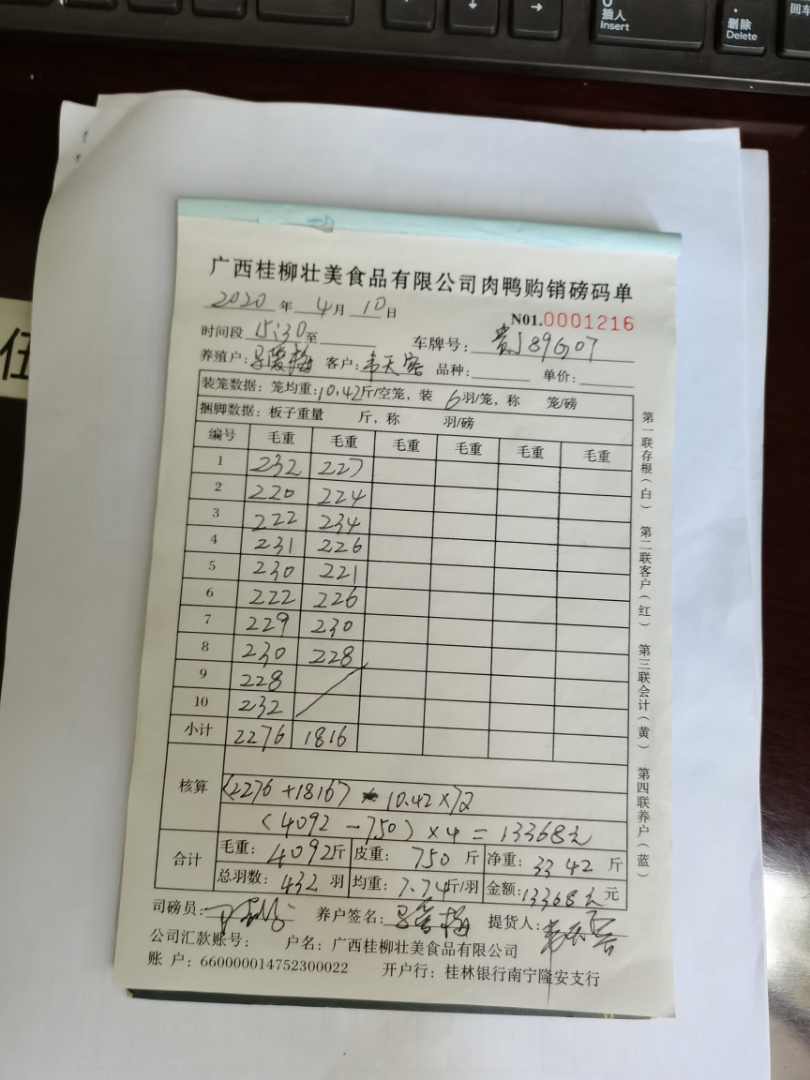 插入
Insert
删除
Delete
回车
伍
广西桂柳壮美食品有限公司肉鸭购销磅码单
2020 年 4 月 10 日
N01.0001216
时间段 15:30 至 车牌号: 贵J89G07
养殖户: 客户: 韦天 品种: 单价:
装笼数据: 笼均重: 10.42斤/空笼, 装 6 羽/笼, 称 笼/磅
捆脚数据: 板子重量 斤, 称 羽/磅
编号 毛重 毛重 毛重 毛重 毛重 毛重
1 232 227
2 220 224
3 222 234
4 231 226
5 230 221
6 222 226
7 229 230
8 230 228
9 228
10 232
小计 2276 1816
核算
(2276+1816) 10.42×72
(4092-750)×4=13368元
合计 毛重: 4092斤 皮重: 750 斤 净重: 3342 斤
总羽数: 432 羽 均重: 7.74斤/羽 金额: 13368元 元
司磅员: 养户签名: 提货人:
公司汇款账号: 户名: 广西桂柳壮美食品有限公司
账 户: 660000014752300022 开户行: 桂林银行南宁隆安支行
第一联存根(白) 第二联客户(红) 第三联会计(黄) 第四联养户(蓝)